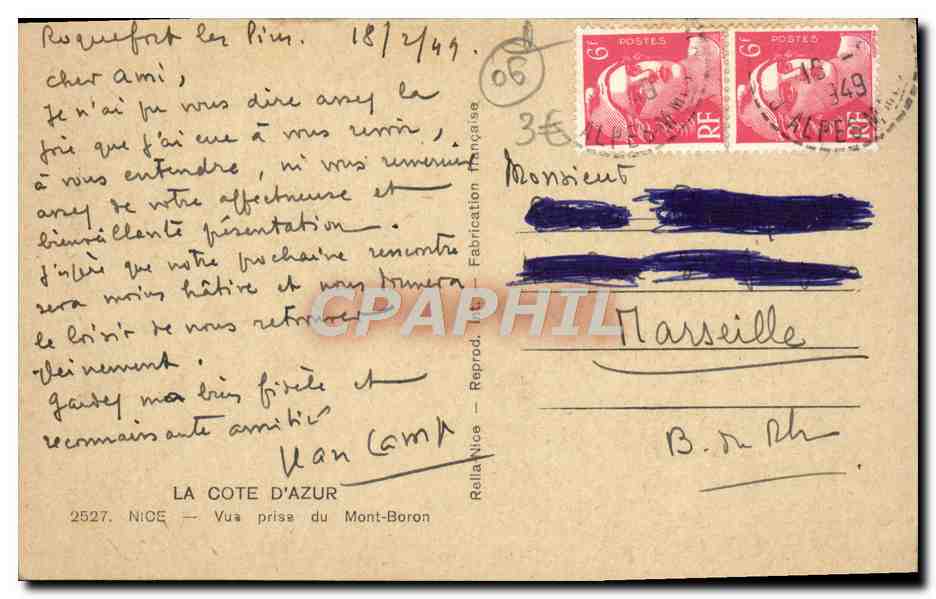 Roquefort les Pins. 18/2/49.
cher ami,
Je n'ai pu vous dire assez la
joie que j'ai eue à vous revoir,
à vous entendre, ni vous remercier
assez de votre affectueuse et
bienveillante présentation.
J'espère que notre prochaine rencontre
sera moins hâtive et nous donnera
le loisir de nous retrouver
pleinement.
Gardez ma bien fidèle et
reconnaissante amitié
Jean Camp
LA COTE D'AZUR
2527. NICE — Vue prise du Mont-Boron
Rella-Nice — Reprod. Int. — Fabrication française
06
3€
6F POSTES RF
6F POSTES RF
ALPES-M
ALPES-M
949
Monsieur
Marseille
B. du Rh
CPAPHIL